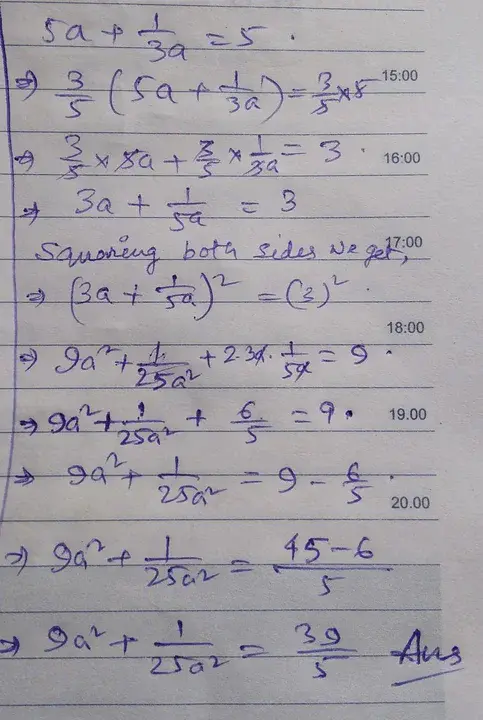 5a + 1/3a = 5 .
⇒ 3/5 ( 5a + 1/3a ) = 3/5 × 5 15:00
⇒ 3/5 × 5a + 3/5 × 1/3a = 3 . 16:00
⇒ 3a + 1/5a = 3
Squaring both sides we get, 17:00
⇒ (3a + 1/5a)² = (3)² .
18:00
⇒ 9a² + 1/25a² + 2 3a . 1/5a = 9 .
⇒ 9a² + 1/25a² + 6/5 = 9 . 19.00
⇒ 9a² + 1/25a² = 9 - 6/5 .
20.00
⇒ 9a² + 1/25a² = 45-6/5
⇒ 9a² + 1/25a² = 39/5 Ans